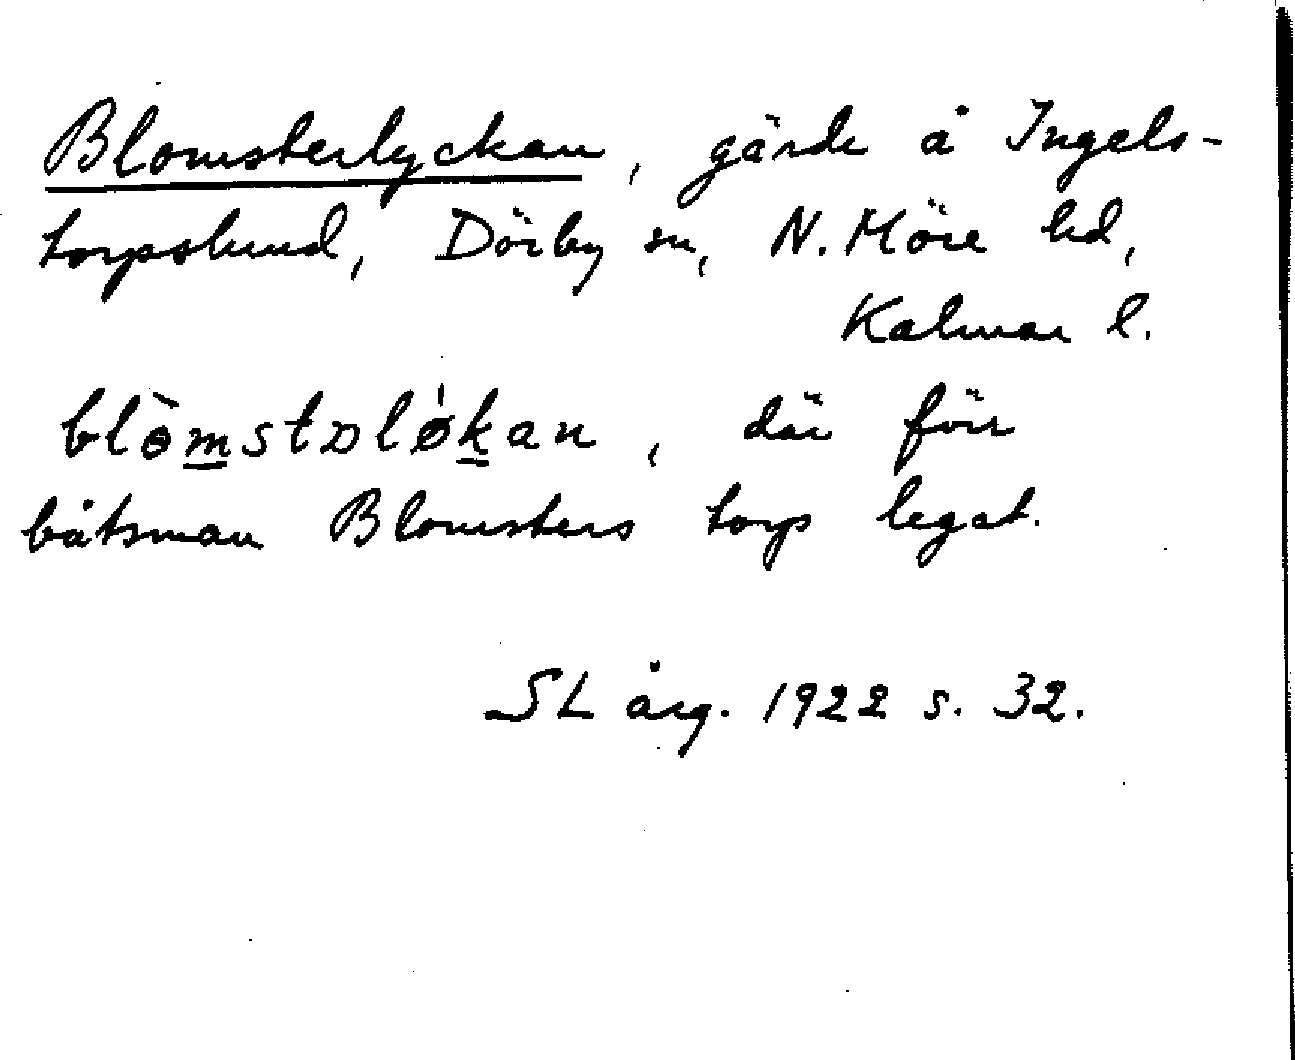 Blomsterlyckan, gärde å Ingels-
torpslund, Dörby sn, N. Möre hd,
Kalmar l.
blɵ̀m̲stᴅlǿk̲an, där förr
båtsman Blomsters torp legat.
SL årg. 1922 s. 32.